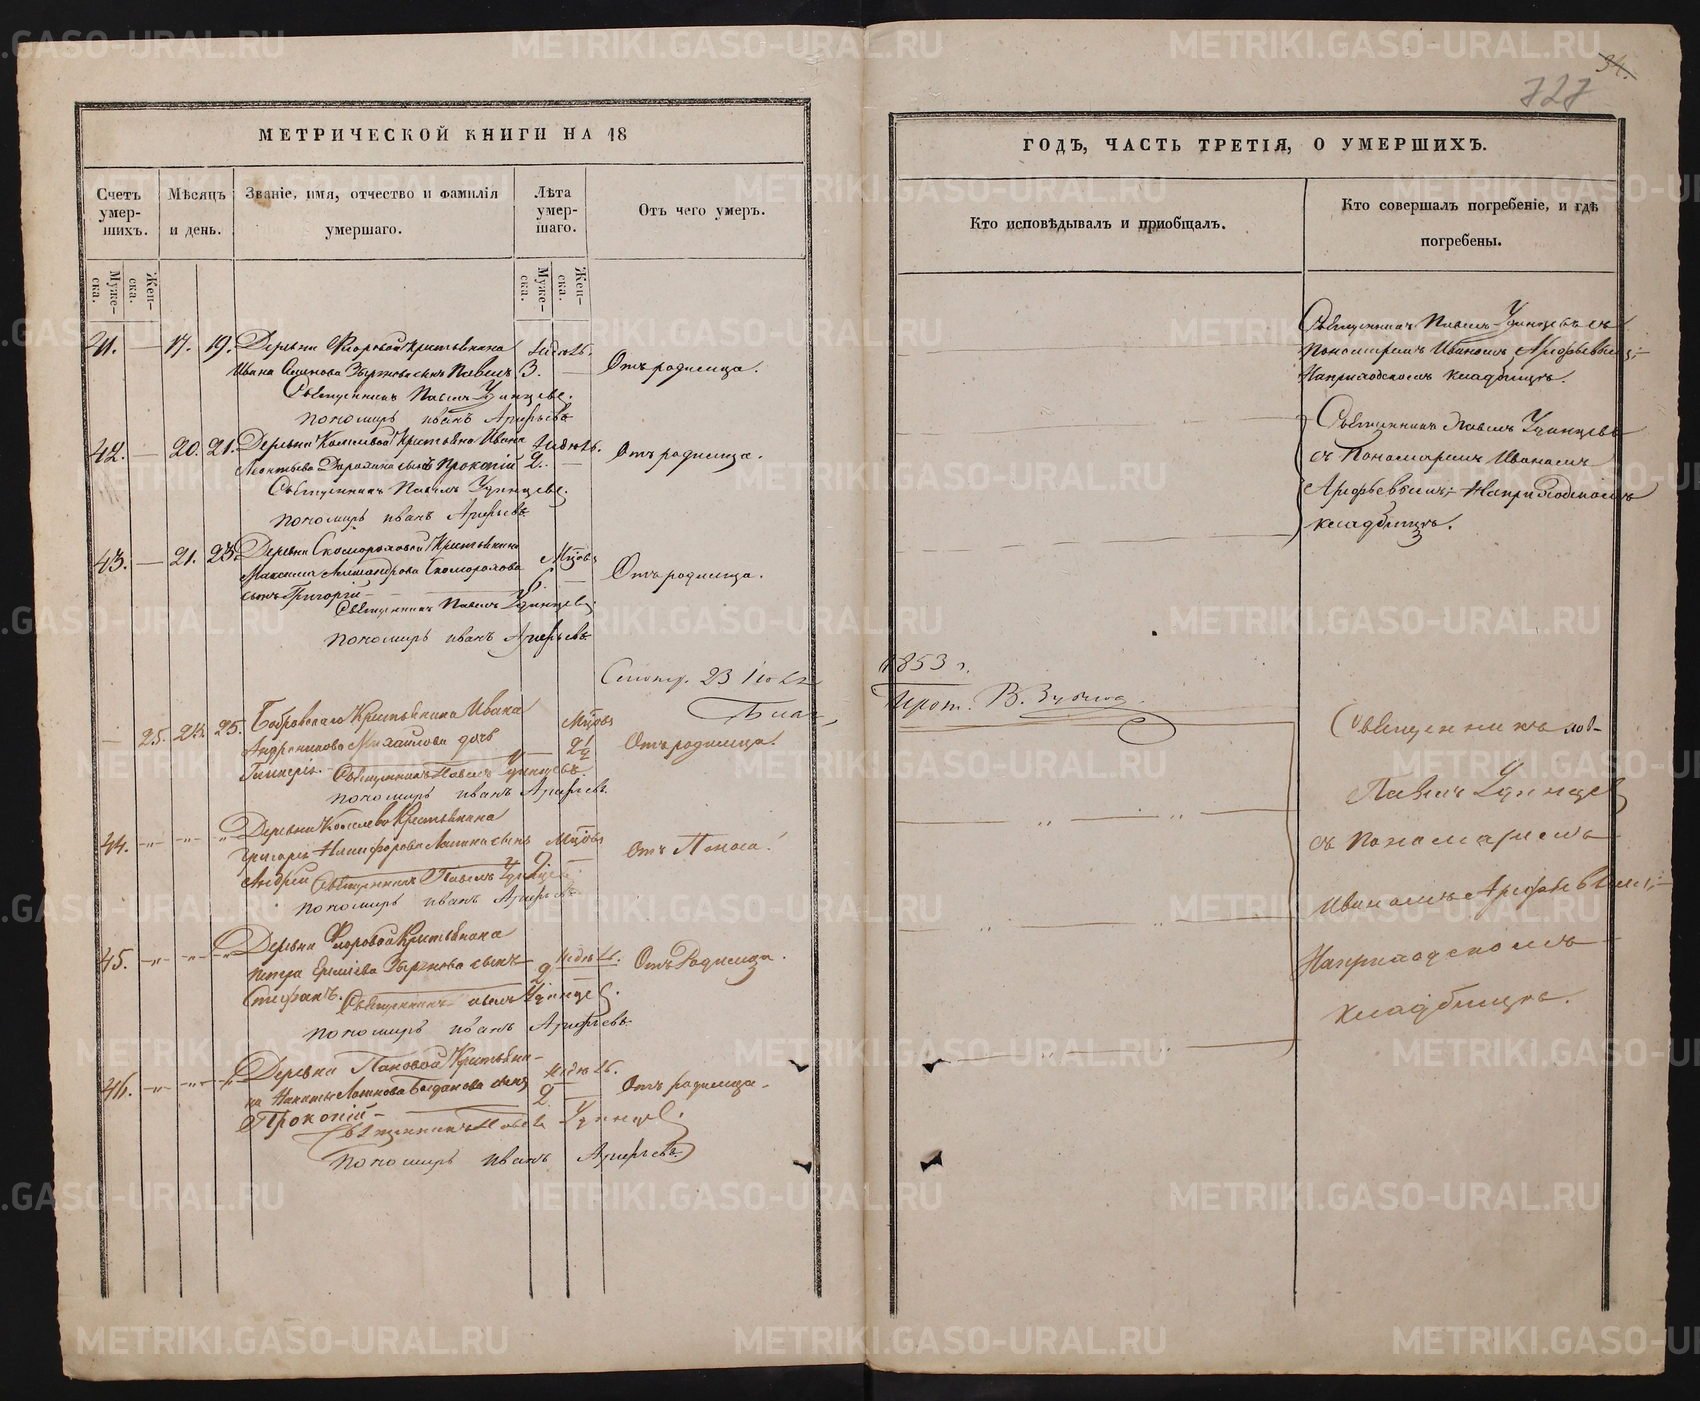 34.
727
МЕТРИЧЕСКОЙ КНИГИ НА 18
ГОДЪ, ЧАСТЬ ТРЕТІЯ, О УМЕРШИХЪ.
Счетъ умер-шихъ.
Мѣсяцъ и день.
Званіе, имя, отчество и фамилія
умершаго.
Лѣта умер-шаго.
Отъ чего умеръ.
Кто исповѣдывалъ и пріобщалъ.
Кто совершалъ погребеніе, и гдѣ
погребены.
Муже-ска.
Жен-ска.
Муже-ска.
Жен-ска.
41. — 17. 19. Деревни Флоровой Крестьянина недѣль.
Ивана Зырянова сынъ Павелъ 3. — Отъ родимца.
Священникъ Павелъ Удинцевъ.
пономарь иванъ Арефьевъ
42. — 20. 21. Деревни Крестьянина Ивана недѣль.
Леонтьева сынъ Прокопій 2. — Отъ родимца.
Священникъ Павелъ Удинцевъ.
пономарь иванъ Арефьевъ
43. — 21. 23. Деревни Скомороховой Крестьянина Мцовъ
Максима Александрова Скоморохова 6. — Отъ родимца.
сынъ Григорій
Священникъ Павелъ Удинцевъ.
пономарь иванъ Арефьевъ
23 Іюля
1853 г.
Прот. В.
— 25. 24. 25. Бобровскаго Крестьянина Ивана Мцовъ
Андроникова Михайлова дочь — 2½ Отъ родимца.
Гликерія. Священникъ Павелъ Удинцевъ.
пономарь иванъ Арефьевъ
44. Деревни Крестьянина
Григорія Никифорова сынъ Мцовъ 9. Отъ Поноса.
Андрей Священникъ Павелъ Удинцевъ
пономарь иванъ Арефьевъ
45. Деревни Флоровой Крестьянина
петра Зырянова сынъ недѣль. 2. Отъ Родимца.
Стефанъ. Священникъ павелъ Удинцевъ.
пономарь иванъ Арефьевъ
46. Деревни Пановой Крестьяни-
на Никиты Богданова сынъ недѣль. 2 Отъ родимца.
Прокопій
Священникъ Павелъ Удинцевъ.
пономарь иванъ Арефьевъ
Священникъ Павелъ Удинцевъ съ
пономаремъ Иваномъ Арефьевымъ;
На приходскомъ кладбищѣ.
Священникъ Павелъ Удинцевъ
съ Пономаремъ Иваномъ
Арефьевымъ; На приходскомъ
кладбищѣ.
Священникъ
Павелъ Удинцев
съ Пономаремъ
Иваномъ Арефьевымъ;
На приходскомъ
кладбищѣ.
METRIKI.GASO-URAL.RU